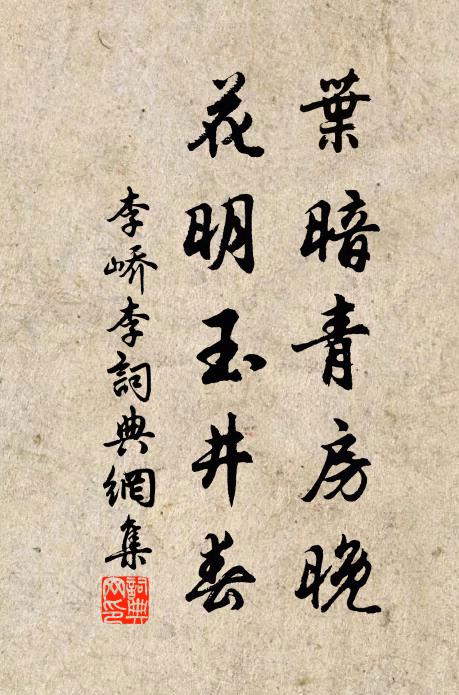 葉暗青房晚
花明玉井春
李嶠李詞典網集
詞典網印